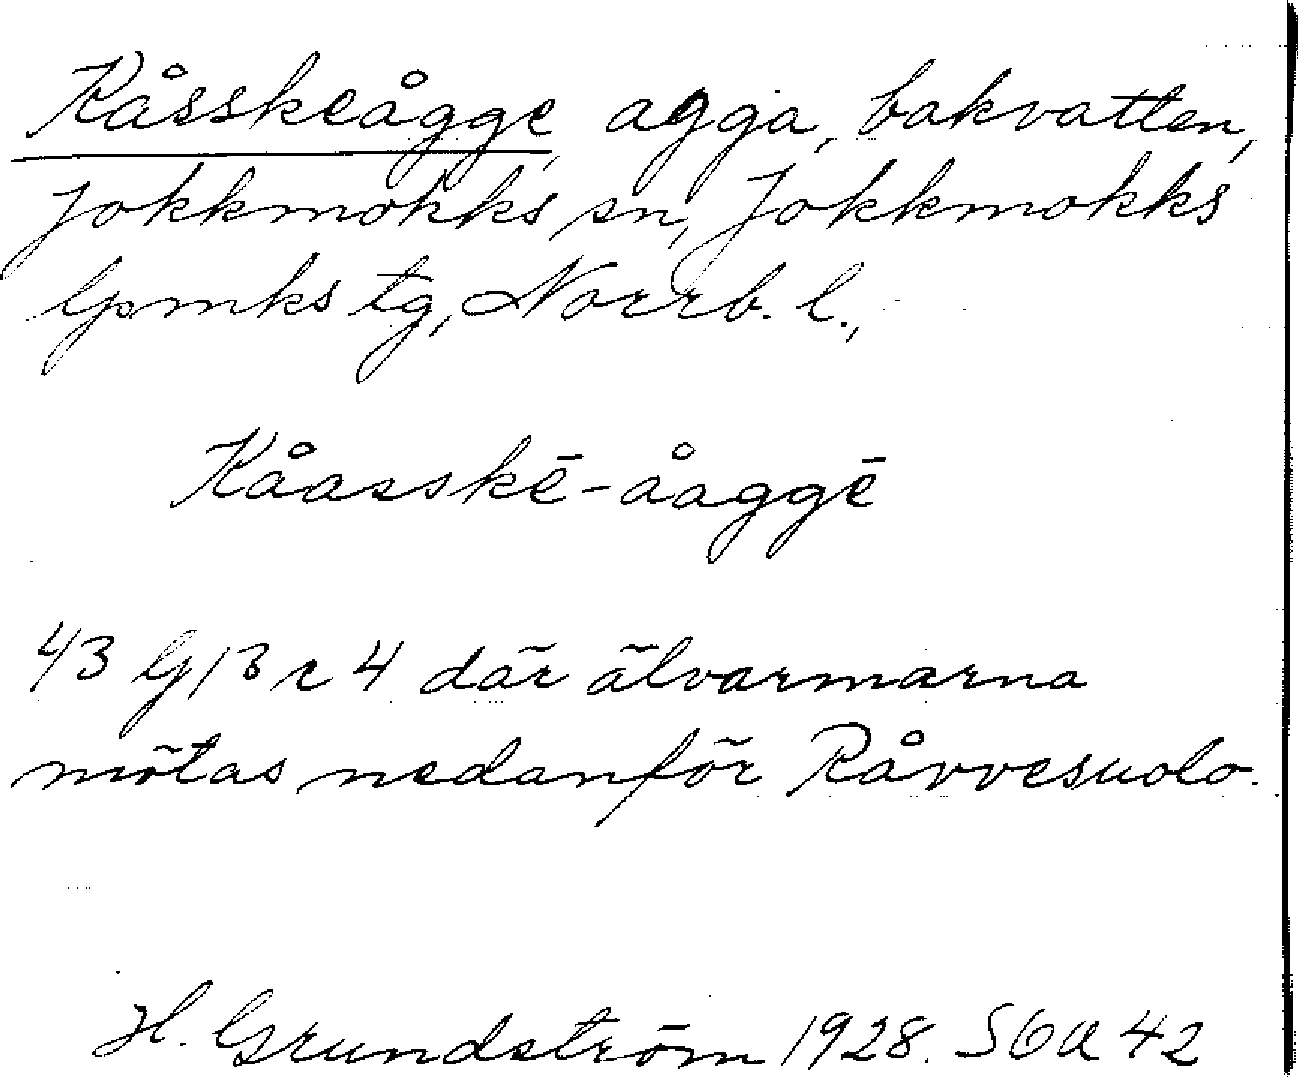 Kåsskeågge, agga, bakvatten,
Jokkmokks sn, Jokkmokks
lpmks tg, Norrb. l.,
Kåasskē-åaggē
43 G 13 c 4 där älvarmarna
mötas nedanför Råvvesuolo.
H. Grundström 1928. SOA 42